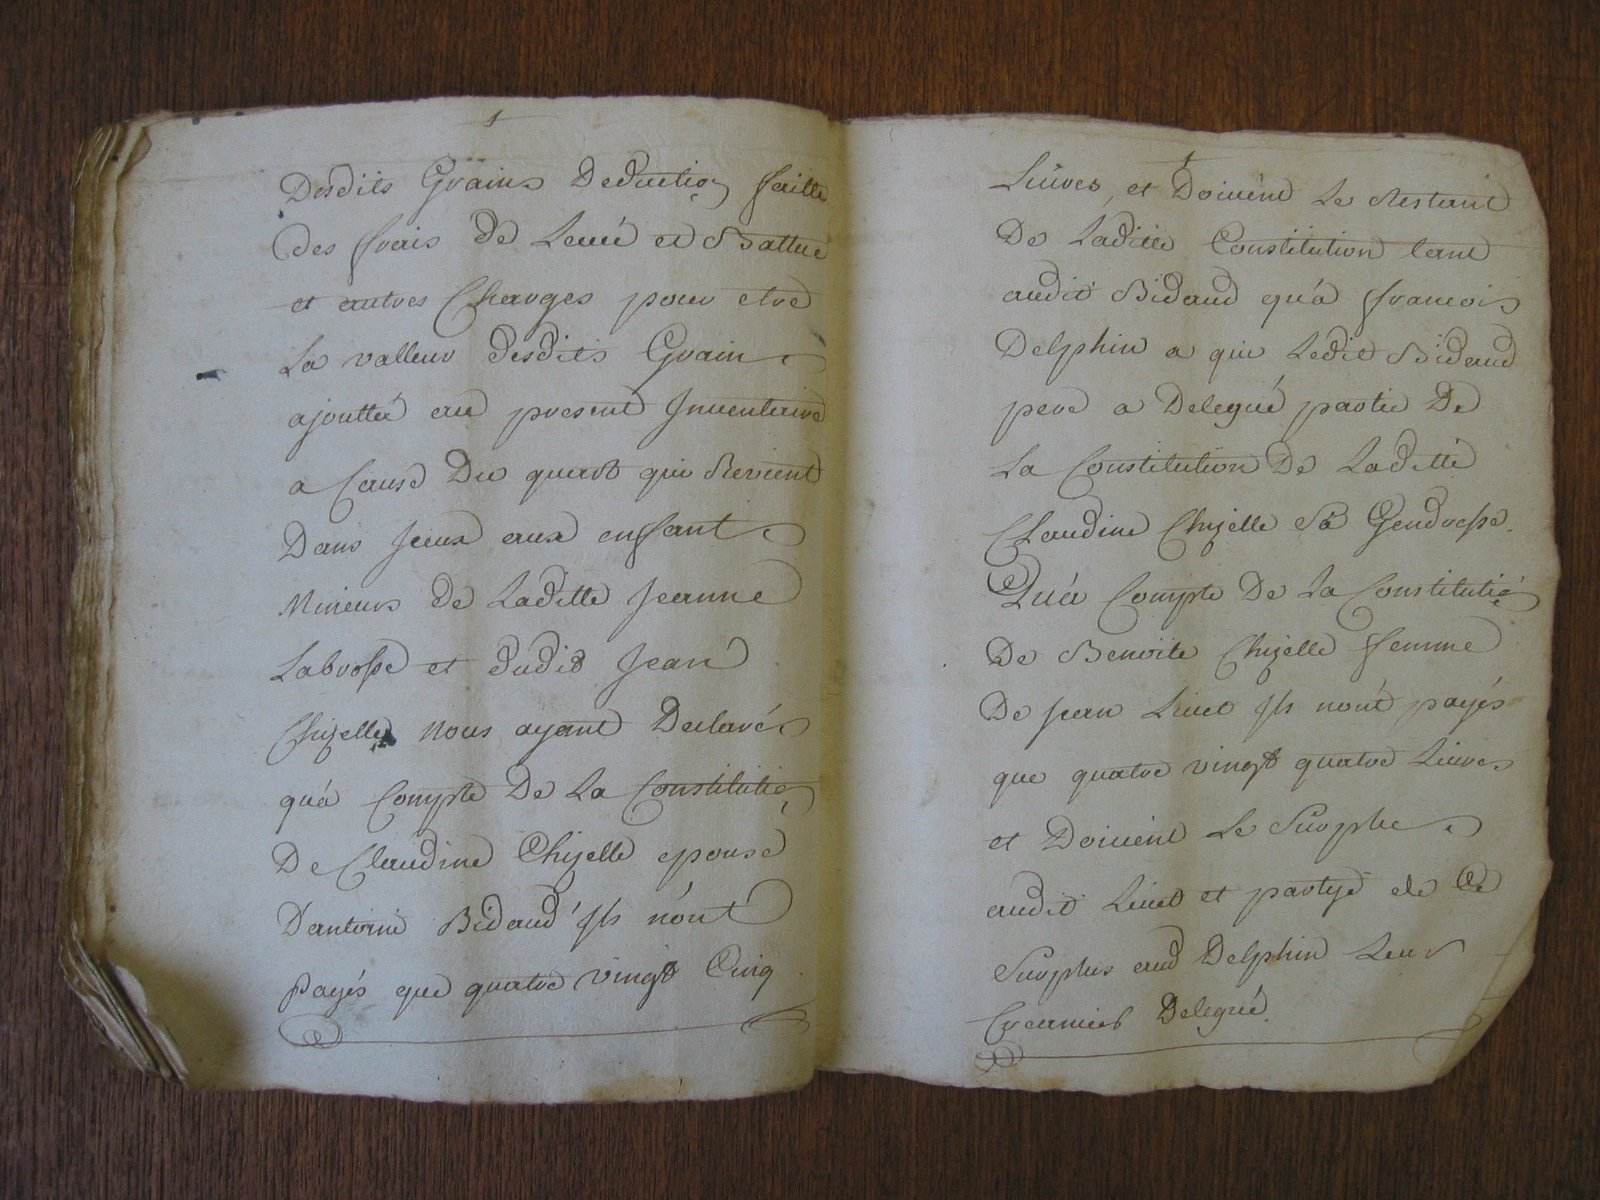 Desdits Grains Deduction faitte
des frais de Levée et Battue
et autres Charges pour etre
La valleur desdits Grains
ajoutteé au present Inventaire
a Cause Du quart qui Revient
Dans Iceux aux enfants
Mineurs de Laditte Jeanne
Labrosse et dudit Jean
Chizelle Nous ayant Declarés
qu'a Compte De La Constitution
De Claudine Chizelle epouse
D'antoine Bidaud Ils n'ont
Payés que quatre vingt Cinq
Livres, et Doivent Le Restant
De Laditte Constitution tant
audit Bidaud qu'a francois
Delphin a qui Ledit Bidaud
pere a Delegué partie De
La Constitution De Laditte
Claudine Chizelle Sa Gendresse.
Qu'a Compte De La Constitution
De Benoite Chizelle femme
De Jean Livet Ils n'ont payés
que quatre vingt quatre Livres
et Doivent Le Surplus
audit Livet et partye de Ce
Surplus aud Delphin Leur
Creancier Delegué.